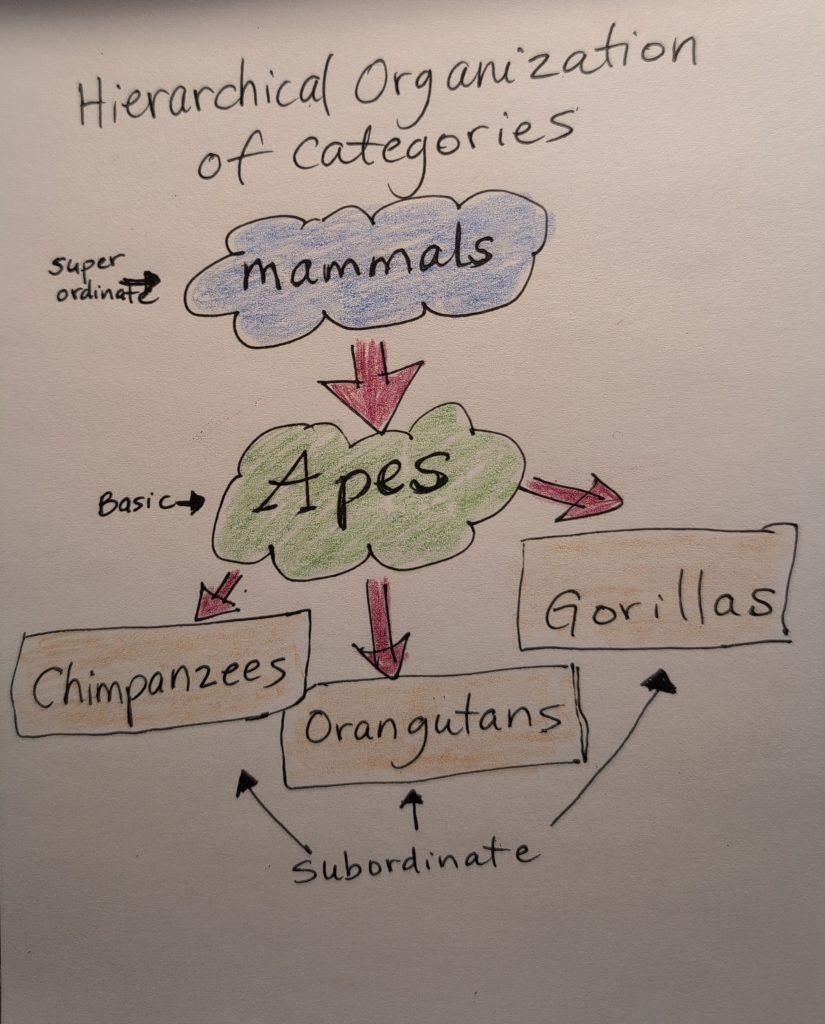 Hierarchical Organization
of Categories
mammals
super
ordinate
Apes
Basic
Gorillas
Chimpanzees
Orangutans
Subordinate